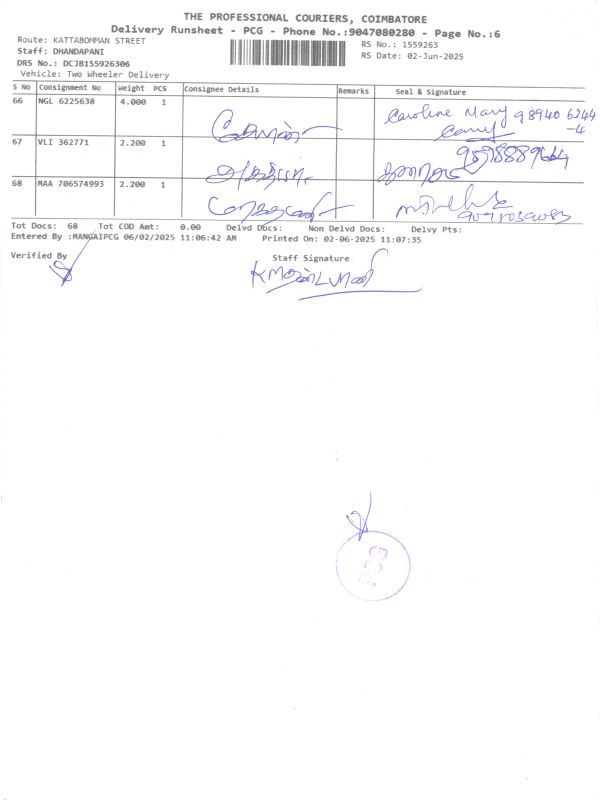 THE PROFESSIONAL COURIERS, COIMBATORE
Delivery Runsheet - PCG - Phone No.:9047080280 - Page No.:6
Route: KATTABOMMAN STREET
Staff: DHANDAPANI
DRS No.: DCJB155926306
Vehicle: Two Wheeler Delivery
RS No.: 1559263
RS Date: 02-Jun-2025
S No Consignment No Weight PCS Consignee Details Remarks Seal & Signature
66 NGL 6225638 4.000 1 Caroline Mary 98940 6244
-4
67 VLI 362771 2.200 1
68 MAA 706574993 2.200 1
Tot Docs: 68 Tot COD Amt: 0.00 Delvd Docs: Non Delvd Docs: Delvy Pts:
Entered By :MANGAIPCG 06/02/2025 11:06:42 AM Printed On: 02-06-2025 11:07:35
Verified By Staff Signature
PCG